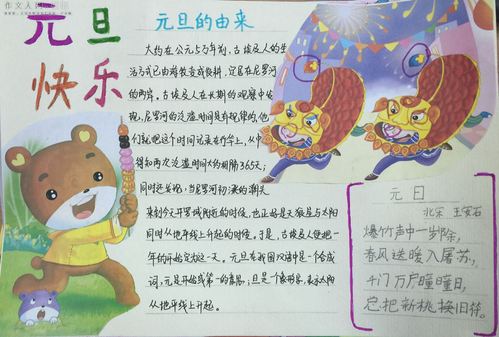 作文人
元旦
快乐
元旦的由来
大约在公元5万年前,古埃及人的生
活方式已由游牧变成农耕,定居在尼罗河
的两岸。古埃及人在长期的观察中发
现,尼罗河的泛滥时间是有规律的,他
们就把这个时间记录在竹竿上,从中
得知两次泛滥时间大约相隔365天;
同时还发现,当尼罗河初涨的潮头
来到今天开罗城附近的时候,也正好是天狼星与太阳
同时从地平线上升起的时候。于是,古埃及人便把一
年的开始定为这一天。元旦在我国汉语中是一个合成
词,元是开始或第一的意思;旦是一个象形字,表示太阳
从地平线上升起。
元日
北宋 王安石
爆竹声中一岁除,
春风送暖入屠苏,
千门万户曈曈日,
总把新桃换旧符。